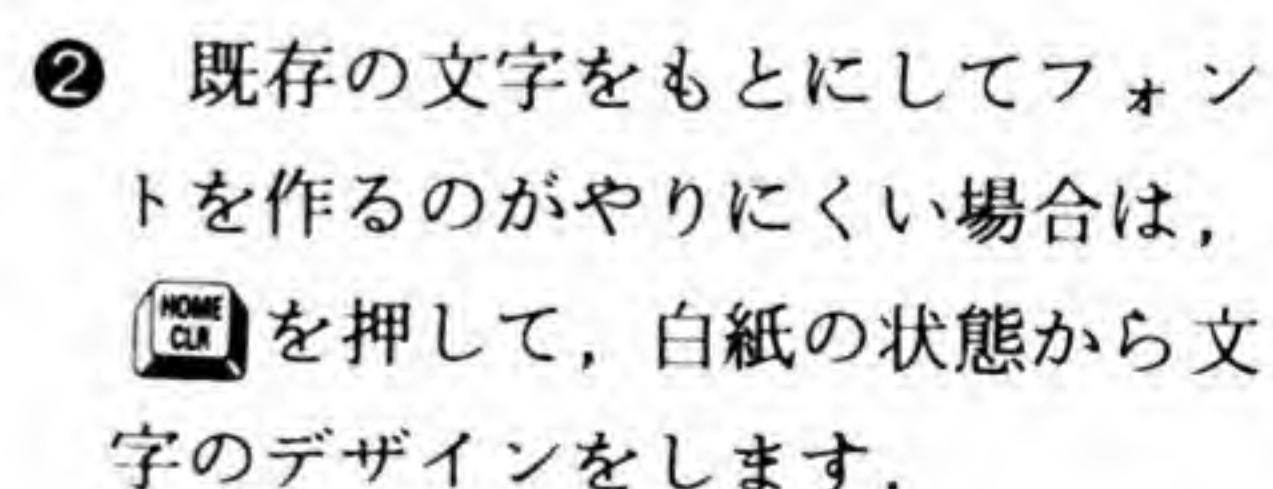 ❷　既存の文字をもとにしてフォン
トを作るのがやりにくい場合は，
HOME CLRを押して，白紙の状態から文
字のデザインをします．